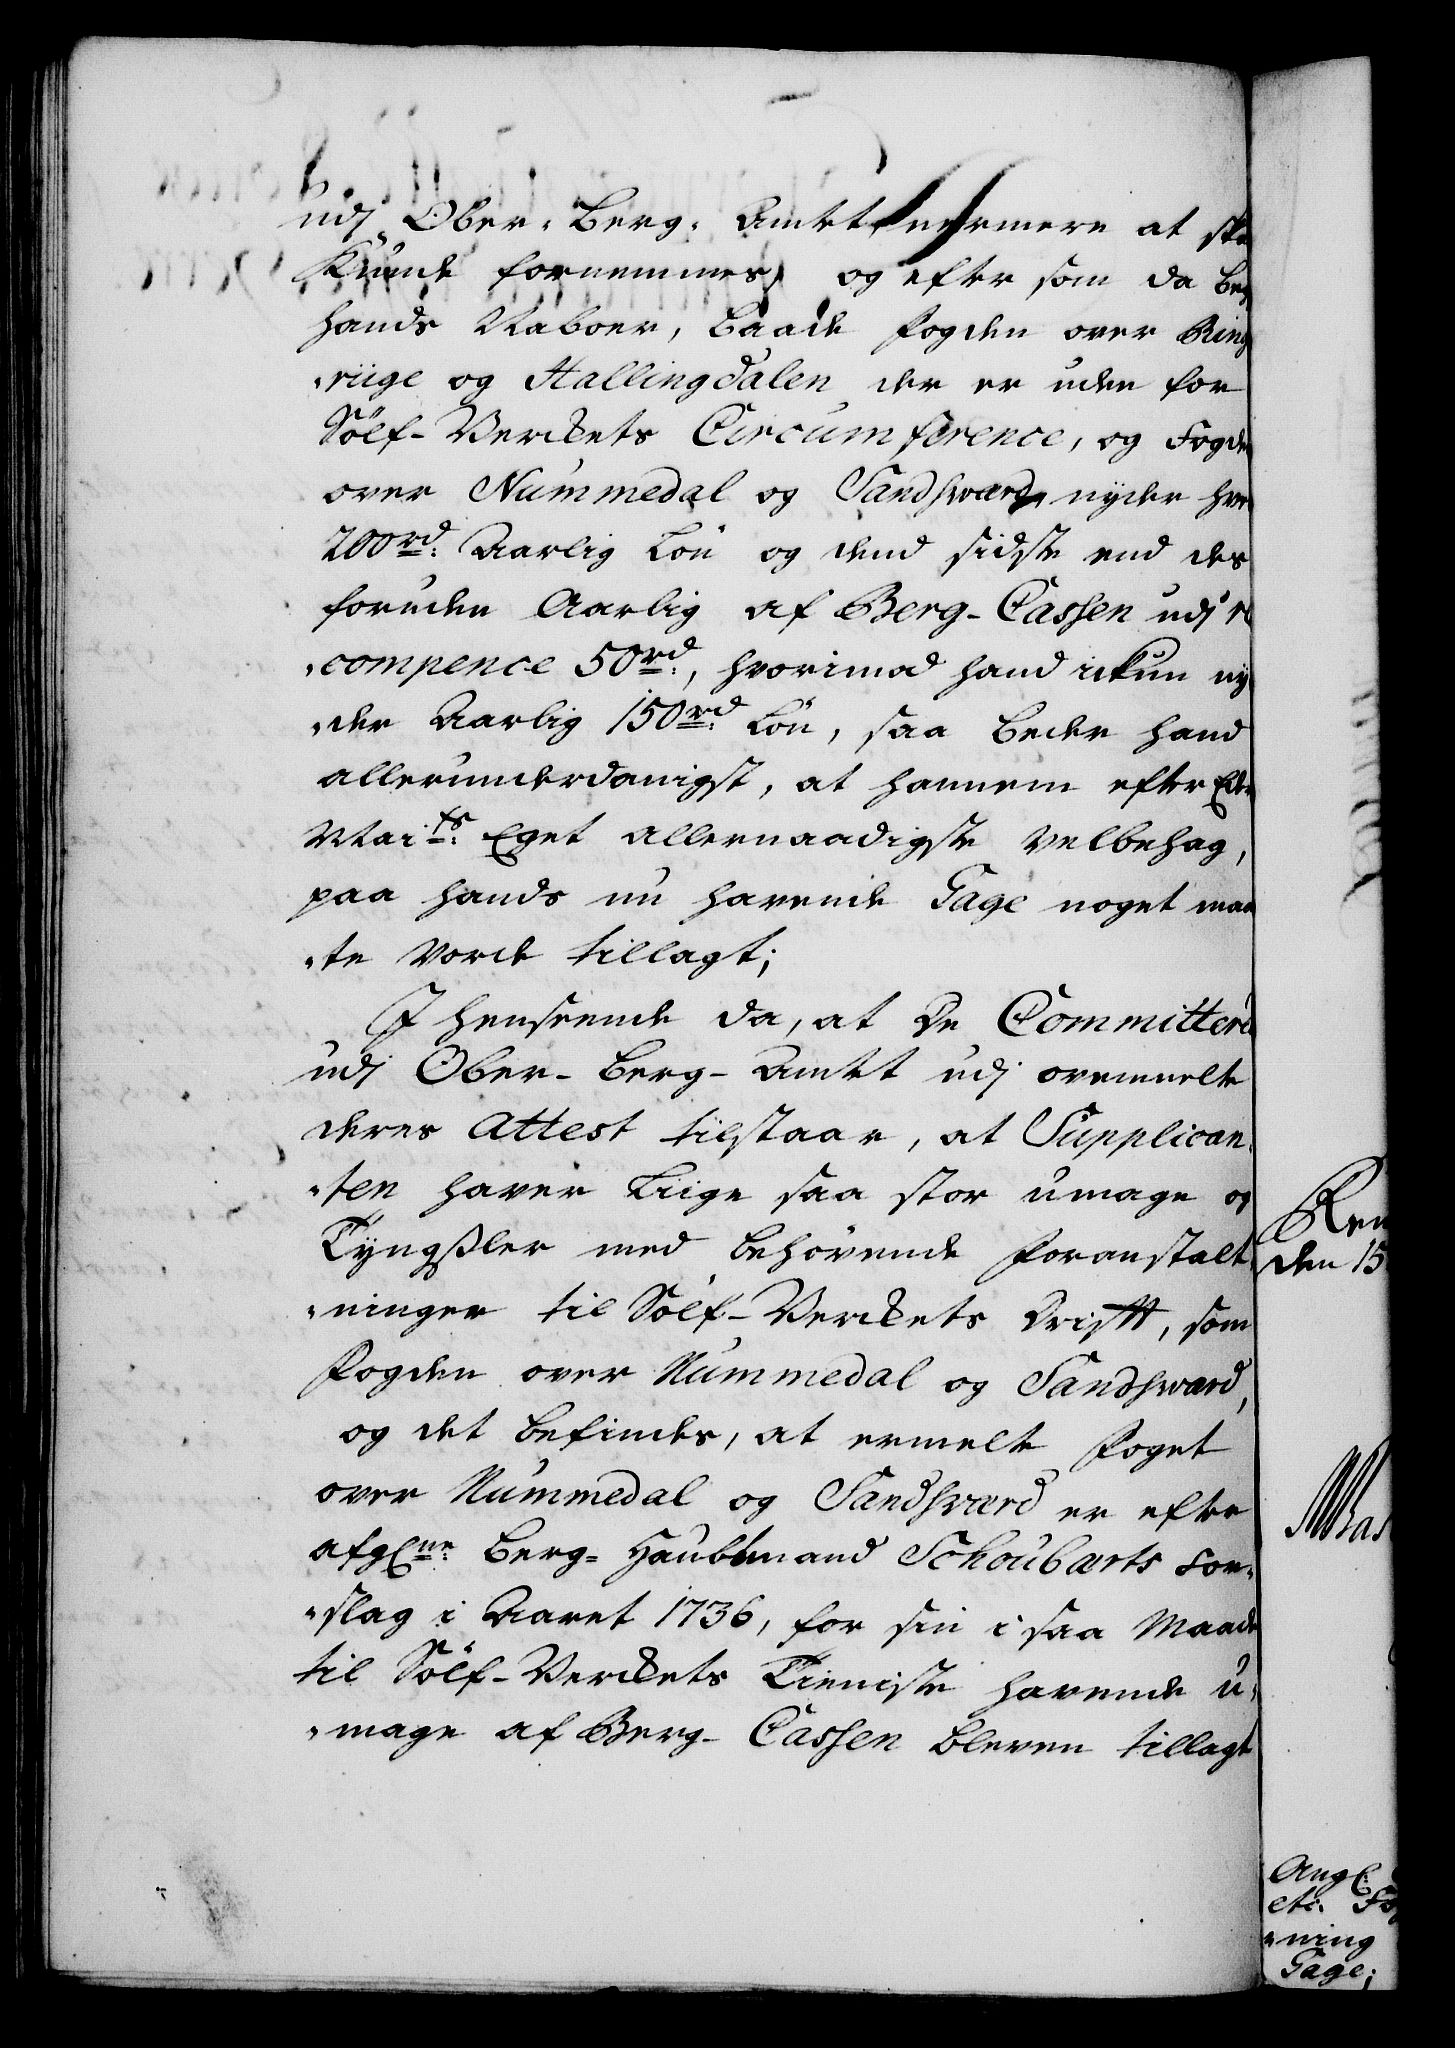 udj Ober-Berg-Amtet nermere at
Kunde fornemmes, og efter som da
hands Naboer, baade Fogden over Ring
-riige og Hallingdalen der er uden for
Sölf-Verckets Circumference, og Fogden
over Nummedal og Sandsværd, nyder hver
200 rd: Aarlig Lön og dend sidste end des
foruden Aarlig af Berg-Cassen udj re
-compence 50 rd:, hvorimod hand ickun ny
-der Aarlig 150 rd: Lön, saa beder hand
allerunderdanigst, at hannem efter Eders
Mai:ts Eget allernaadigste Velbehag,
paa hands nu havende Gage noget maa
-te vorde tillagt;
J henseende da, at De Committerede
udj Ober-Berg-Amtet udj ovenmelte
deres Attest tilstaar, at Supplican-
-ten haver Liige saa stor umage og
Tyngsler med behövende Foranstalt-
-ninger til Sölf-Verckets Drifft, som
Fogden over Nummedal og Sandsværd,
og det befindes, at ermelte Foget
over Nummedal og Sandsværd er efter
afg:ne Berg-Haubtmand Schoubærts For-
-slag i Aaret 1736, for sin i saa Maade
til Sölf-Verckets Tieniste havende u-
-mage af Berg-Cassen bleven tillagt
Ren
den 15
Ang:
-ning
Gage;